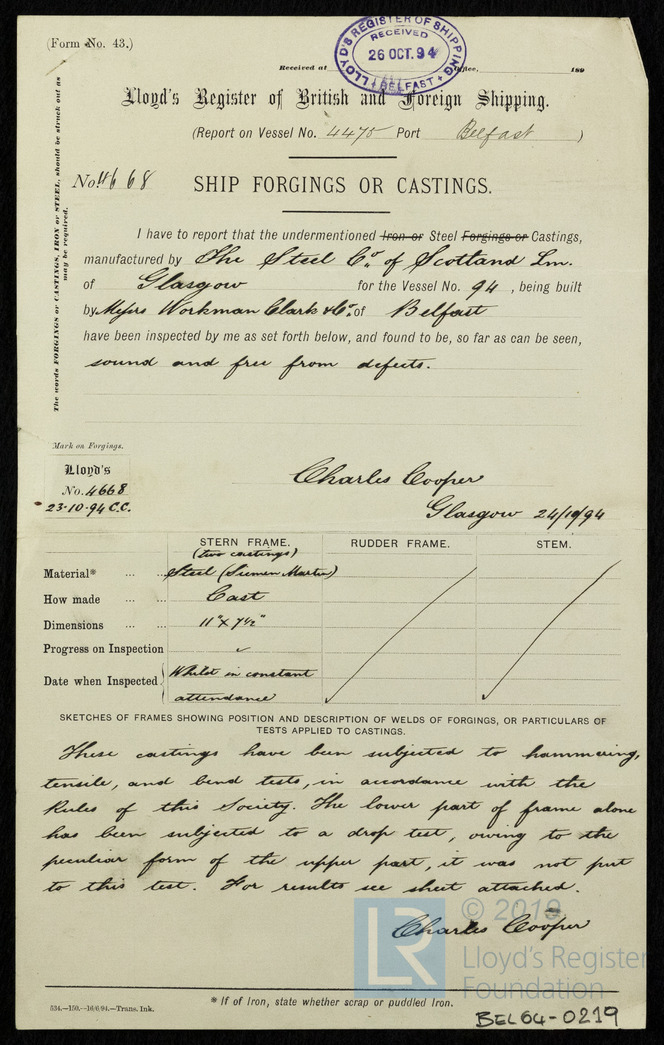 (Form No. 43.)
LLOYD'S REGISTER OF SHIPPING
RECEIVED
26 OCT. 94
BELFAST
Received at Office, 189
Lloyd's Register of British and Foreign Shipping.
(Report on Vessel No. 4475 Port Belfast )
No. 4668 SHIP FORGINGS OR CASTINGS.
The words FORGINGS or CASTINGS, IRON or STEEL, should be struck out as may be required.
I have to report that the undermentioned Iron or Steel Forgings or Castings,
manufactured by The Steel Co. of Scotland Lm.
of Glasgow for the Vessel No. 94 , being built
by Messrs Workman Clark & Co. of Belfast
have been inspected by me as set forth below, and found to be, so far as can be seen,
sound and free from defects.
Mark on Forgings.
Lloyd's
No. 4668
23-10-94 C.C.
Charles Cooper
Glasgow 24/10/94
STERN FRAME. RUDDER FRAME. STEM.
(two castings)
Material* ... ... Steel (Siemen Martin)
How made ... ... Cast
Dimensions ... ... 11" x 7 1/2"
Progress on Inspection ✓
Date when Inspected Whilst in constant
attendance
SKETCHES OF FRAMES SHOWING POSITION AND DESCRIPTION OF WELDS OF FORGINGS, OR PARTICULARS OF
TESTS APPLIED TO CASTINGS.
These castings have been subjected to hammering,
tensile, and bend tests, in accordance with the
Rules of this Society. The lower part of frame alone
has been subjected to a drop test, owing to the
peculiar form of the upper part, it was not put
to this test. For results see sheet attached.
Charles Cooper
LR
© 2019
Lloyd's Register
Foundation
* If of Iron, state whether scrap or puddled Iron.
534.—150.—16/6/94.—Trans. Ink.
BEL64-0219